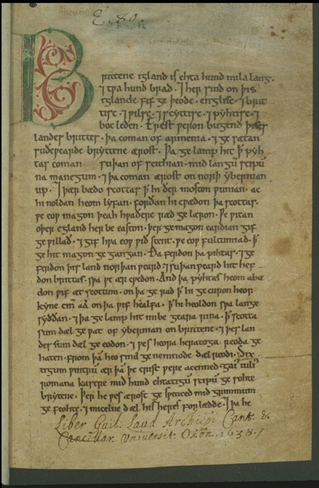 Brittene igland is ehta hund mila lang.
⁊ twa hund brad. ⁊ her sind on þis
iglande fif geþeode. englisc. ⁊ brit
tisc. ⁊ wilsc. ⁊ scyttisc. ⁊ pyhtisc. ⁊
boc leden. Erest weron bugend þises
landes brittes. þa coman of armenia. ⁊ gesætan
suðewearde bryttene ærost. Þa gelamp hit þ pyh
tas coman suþan of scithian. mid langū scipū
na manegum. ⁊ þa coman ærost on norþ ybernian
up. ⁊ þær bædo scottas þ hi ðer moston wunian. ac
hi noldan heom lyfan. forðan hi cwædon þa scottas.
we eow magon þeah hwaðere ræd gelæron. We witan
oþer egland her be easton. þer ge magon eardian gif
ge willað. ⁊ gif hwa eow wiðstent. we eow fultumiað. þ
ge hit magon gegangan. Ða ferdon þa pihtas. ⁊ ge
ferdon þis land norþanweard. ⁊ suþanweard hit hef
don brittas. swa we ær cwedon. And þa pyhtas heom abæ
don wif æt scottum. on þa gerad þ hi gecuron heora
kyne cinn aa on þa wif healfa. þ hi heoldon swa lange
syððan. ⁊ þa gelamp hit imbe geara rina. þ scotta
sum dæl gewat of ybernian on brittene. ⁊ þes lan
des sum dæl geeodon. ⁊ wes heora heratoga reoda ge
haten. from þam heo sind genemnode dæl reodi. Six
tigum wintrū ær þam þe crist were acenned. gaius iuliꝰ
romana kasere mid hund ehtatigū scipū gesohte
brytene. Þer he wes ærost geswenced mid grimmum
gefeohte. ⁊ micelne dæl his heres forlædde. ⁊ þa he
Liber Guil. Laud Archiepi Cant. &
Cancellar. Universit. Oxon. 1638.